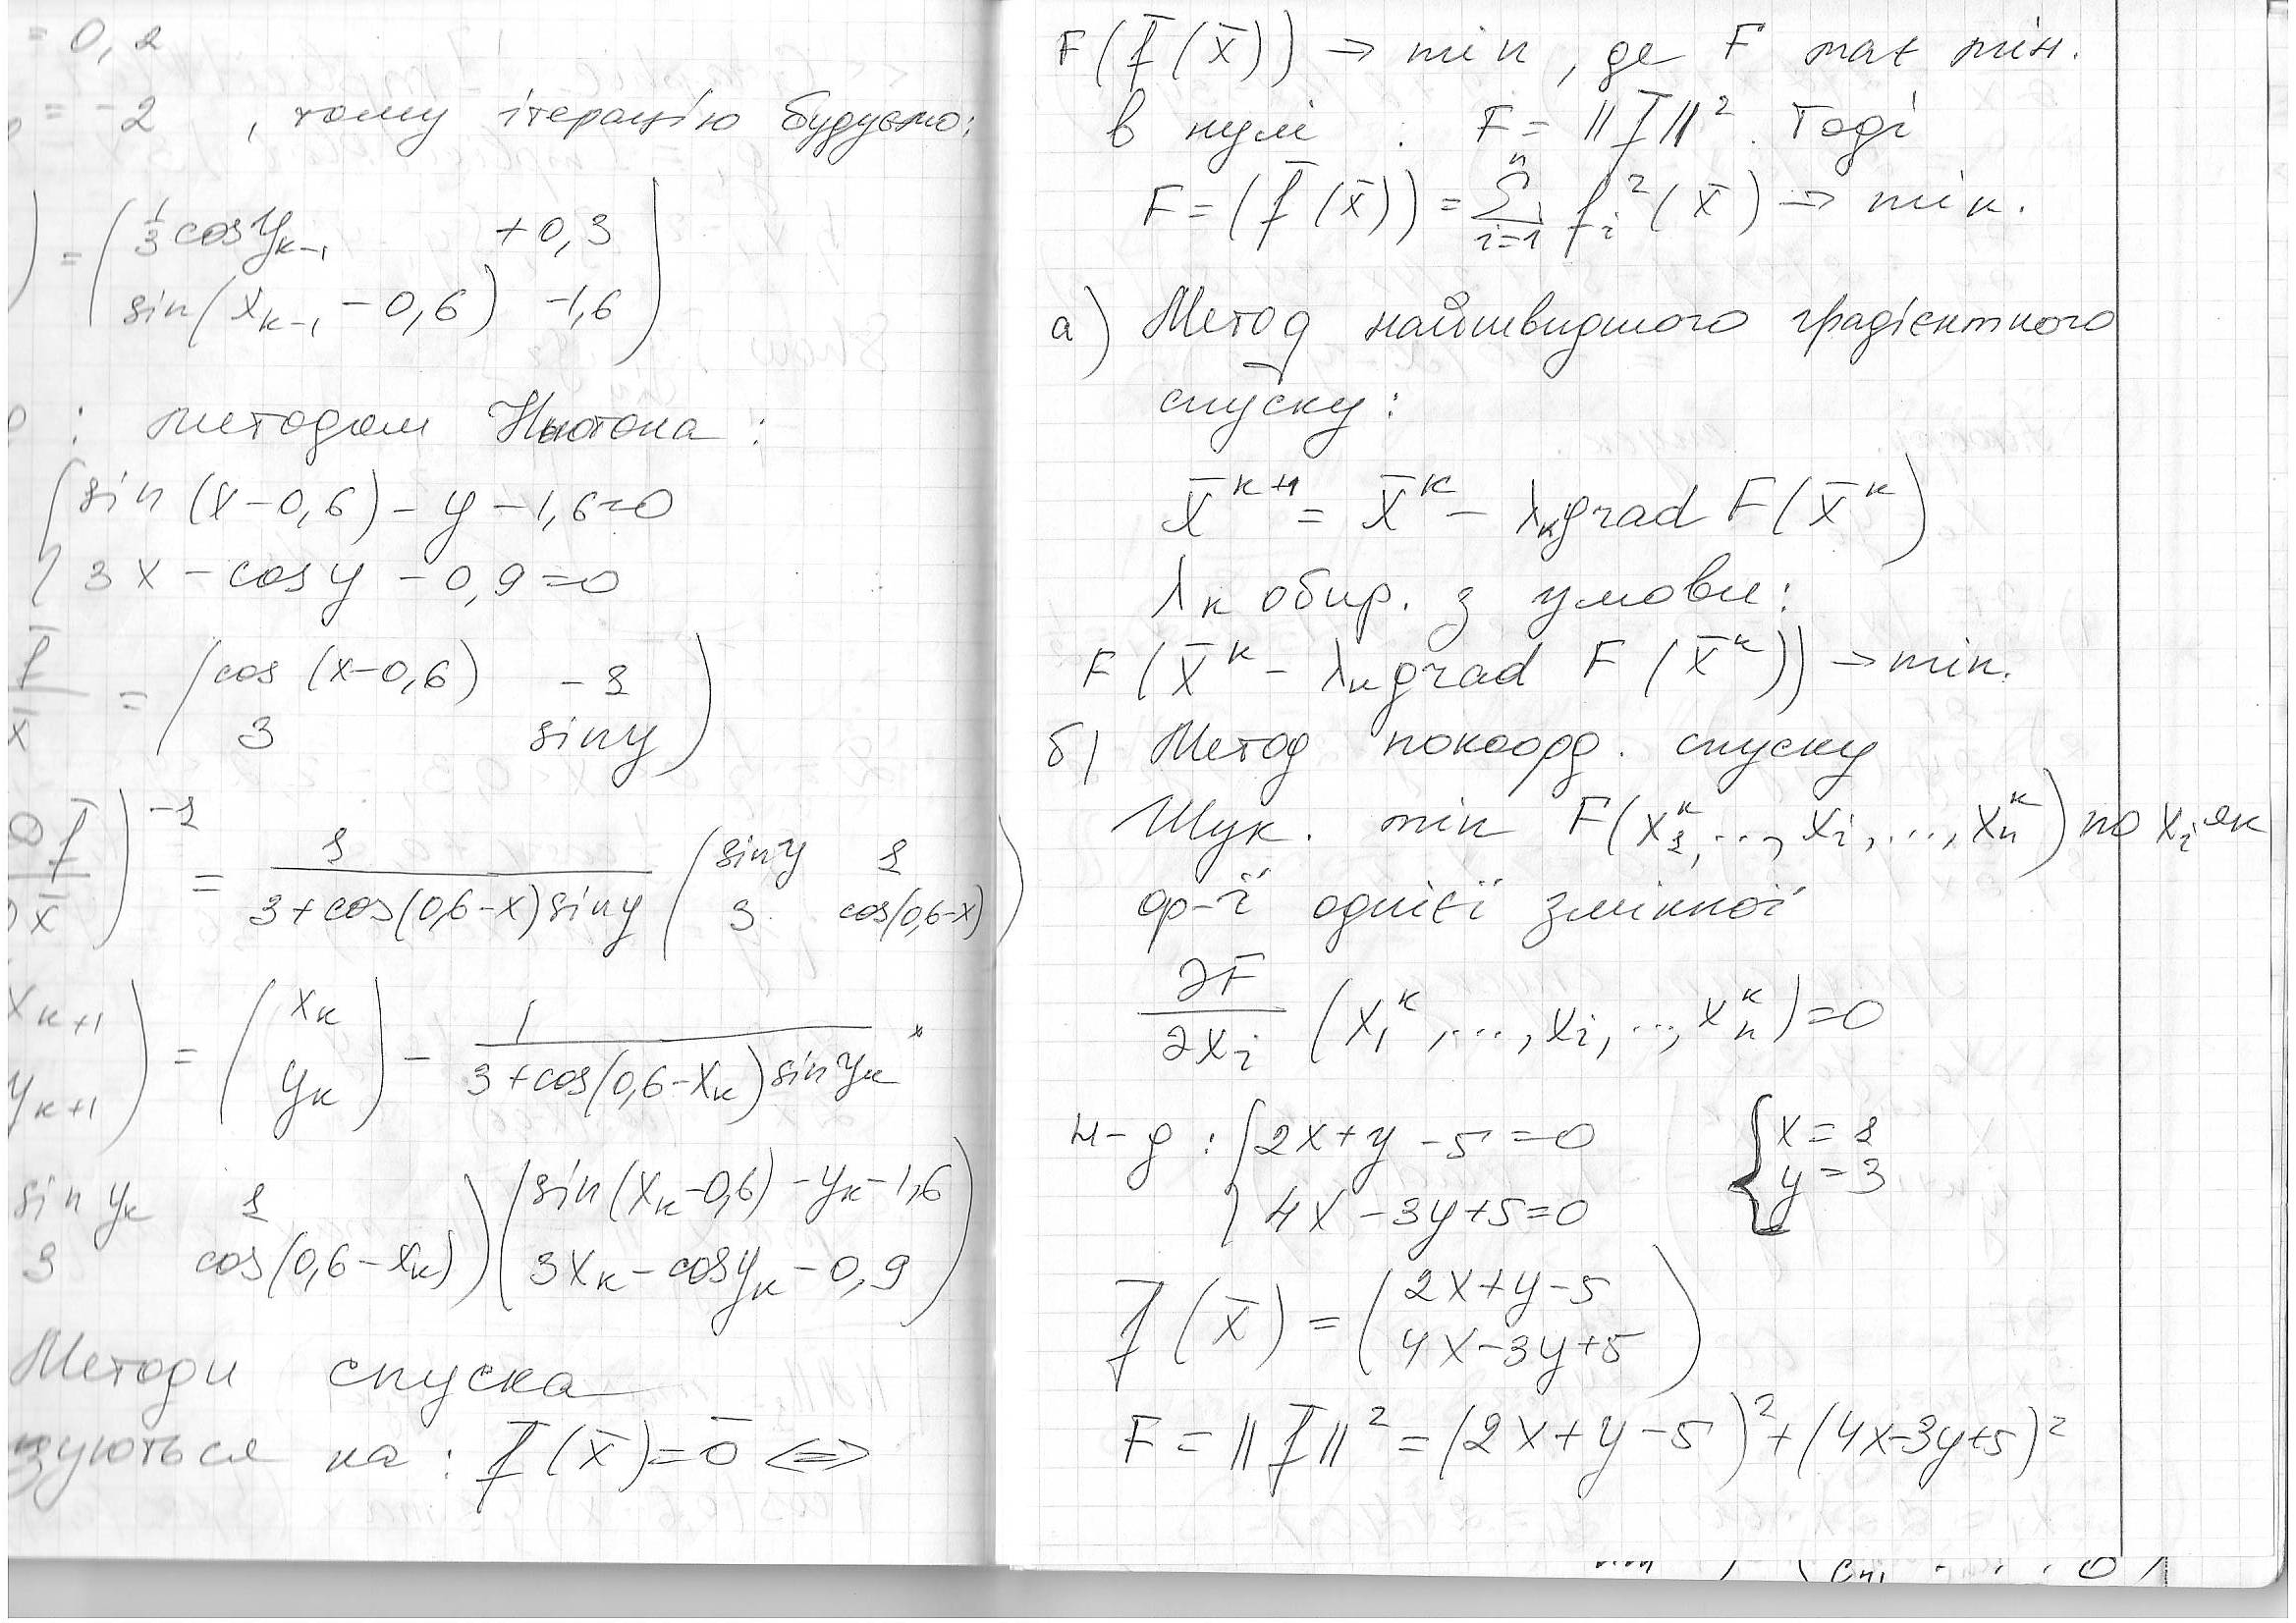 = 0,2
= -2 , тому ітерацію будуємо:
) = ( 1/3 cos y_{k-1} +0,3
sin(x_{k-1} - 0,6) -1,6 )
: методом Ньютона :
{ sin (x-0,6) - y - 1,6=0
3x - cos y - 0,9=0
f̄ / x̄ = ( cos (x-0,6) -1
3 sin y )
( ∂f̄ / ∂x̄ )^{-1} = 1 / (3+cos(0,6-x)sin y) ( sin y 1
3 cos(0,6-x) )
( x_{k+1}
y_{k+1} ) = ( x_k
y_k ) - 1 / (3+cos(0,6-x_k) sin y_k) *
sin y_k 1
3 cos(0,6-x_k) ) ( sin(x_k-0,6) - y_k - 1,6
3x_k - cos y_k - 0,9 )
Методи спуска
зуються на : f̄ (x̄)=0̄ <=>
F(f̄(x̄)) → min , де F має мін.
в нулі . F = ||f̄||². Тоді
F=(f̄(x̄)) = Σ_{i=1}^{n} f_i²(x̄) → min.
а) Метод найшвидшого градієнтного
спуску:
x̄^{k+1} = x̄^k - λ_k grad F(x̄^k)
λ_k обир. з умови:
F (x̄^k - λ_k grad F (x̄^k)) → min.
б) Метод покоорд. спуску
Шук. min F(x_1^k, .., x_i, ..., x_n^k) по x_i як
ф-ї однієї змінної
∂F/∂x_i (x_1^k, ..., x_i, .., x_n^k)=0
н-д : { 2x+y -5 =0
4x -3y+5=0
{ x = 1
y = 3
f̄ (x̄) = ( 2x+y-5
4x-3y+5 )
F = ||f̄||² = (2x+y-5)²+(4x-3y+5)²